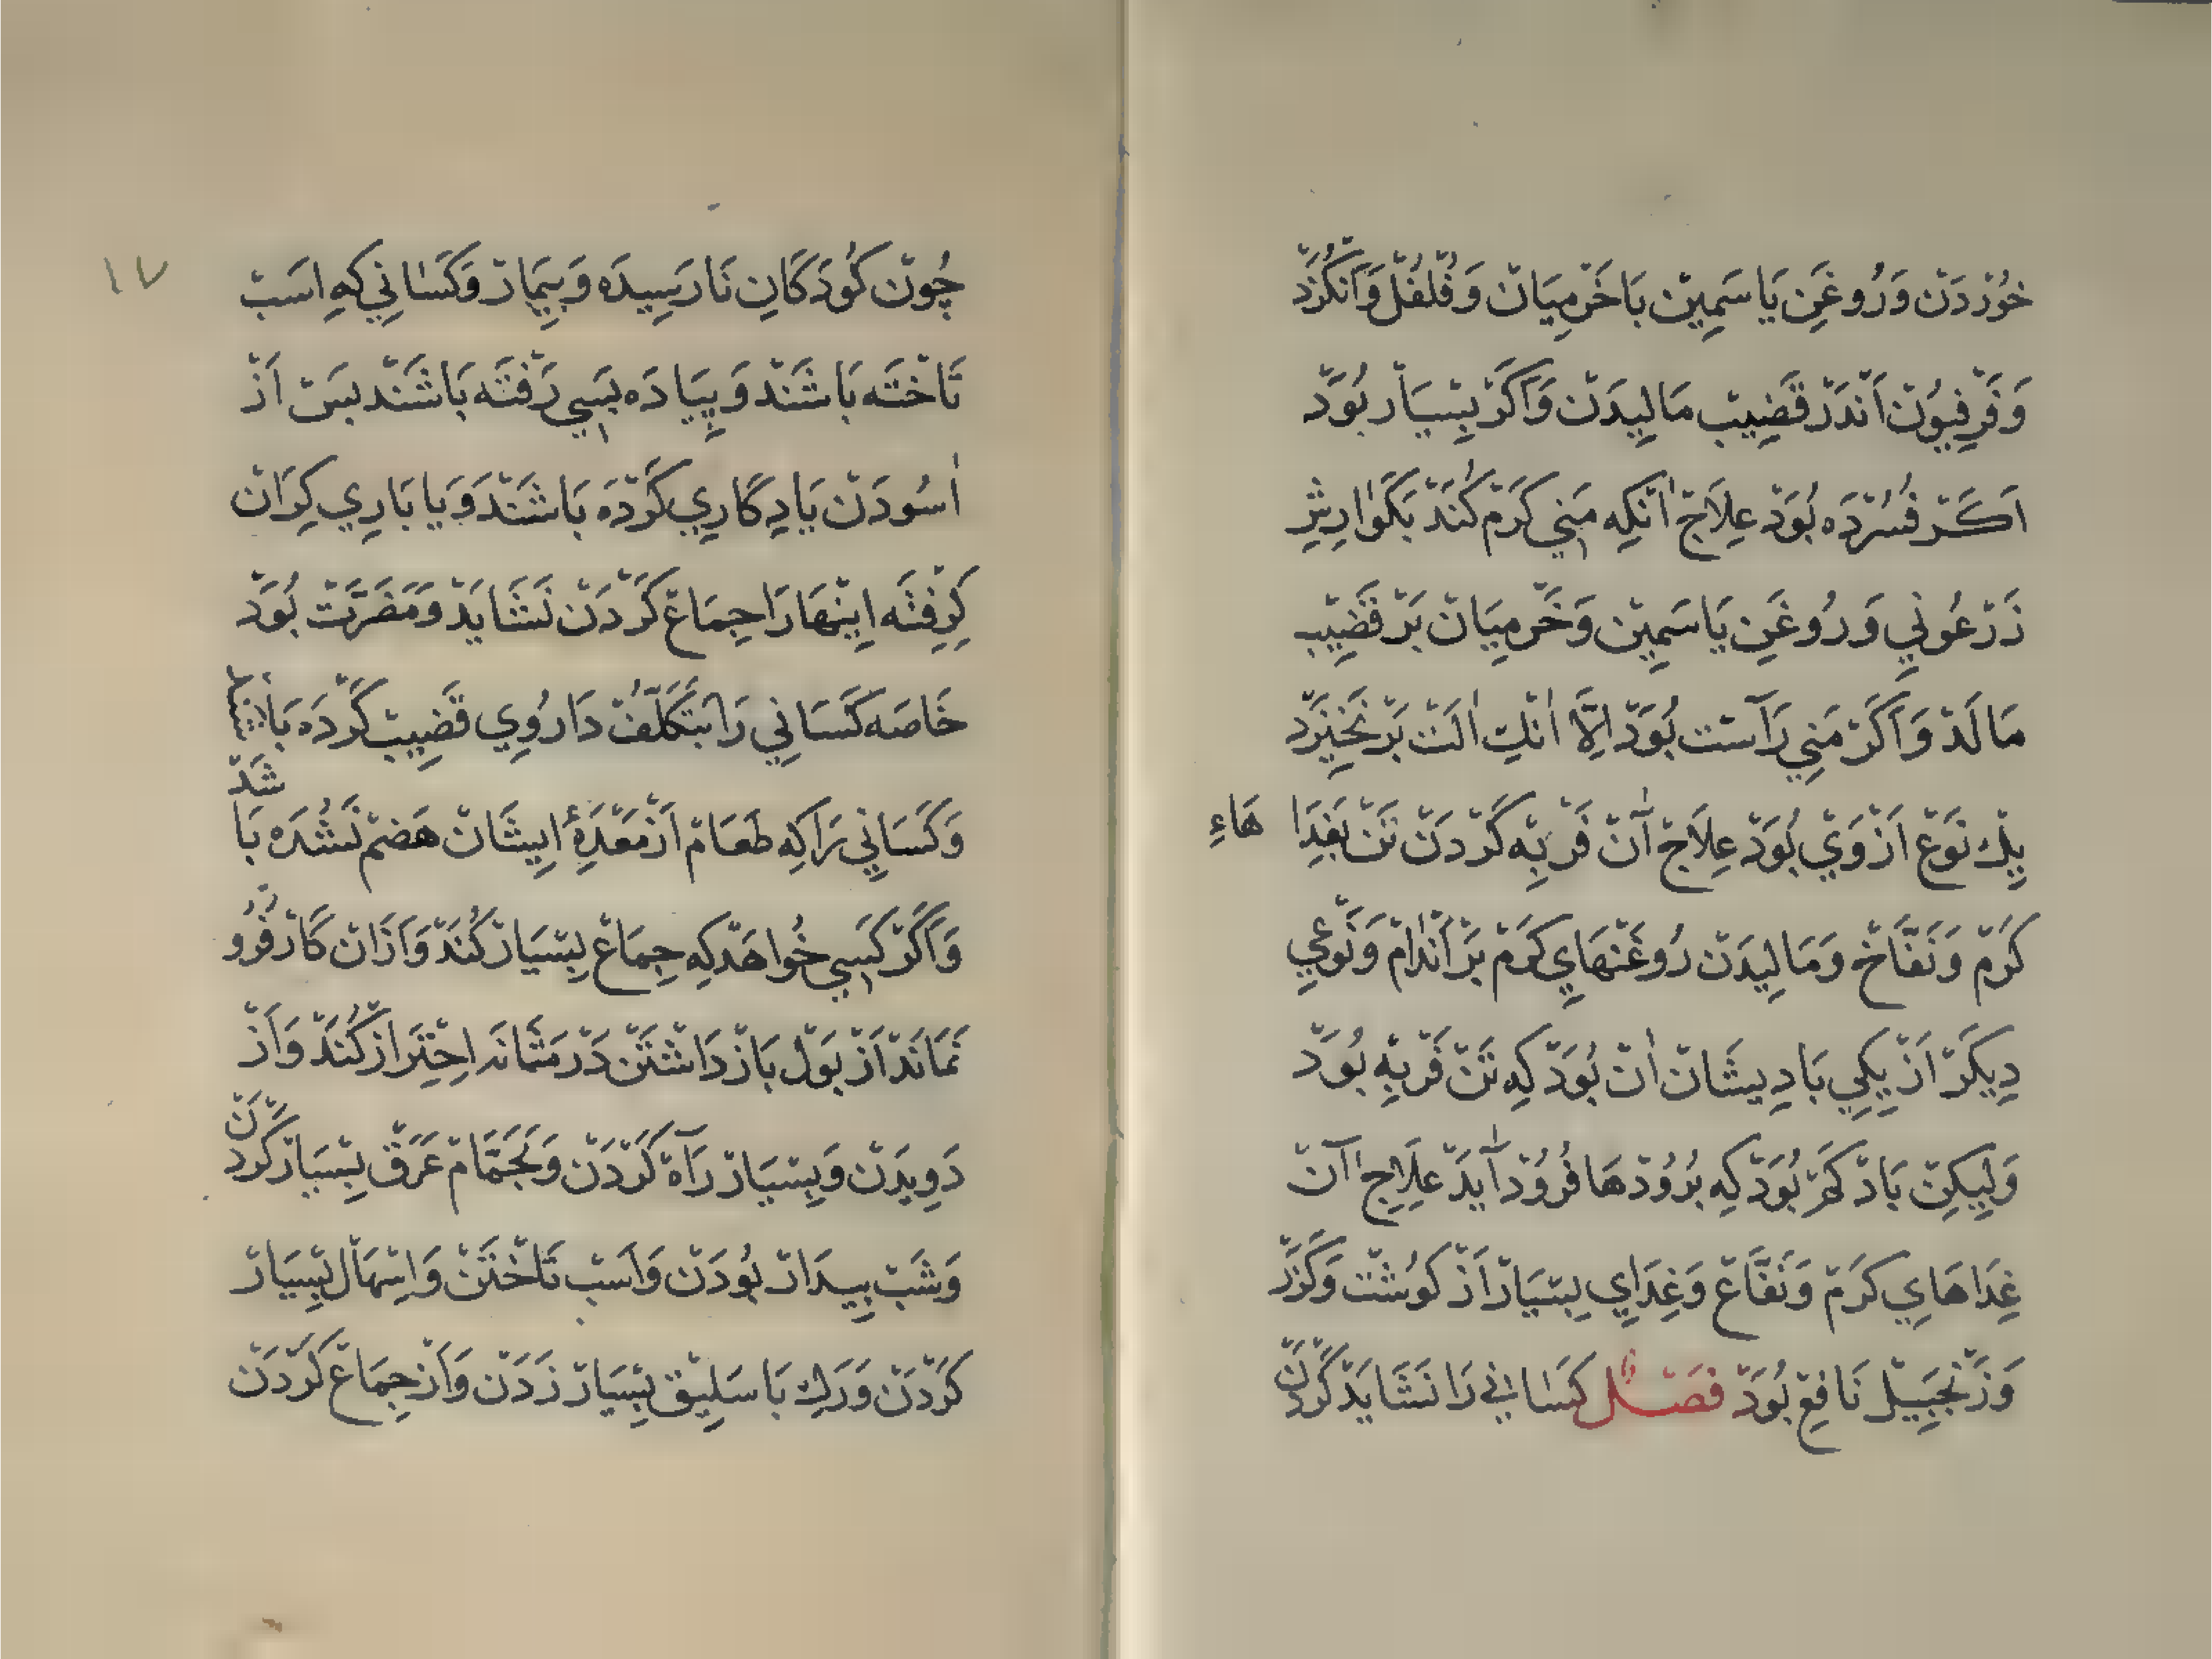 خُوْردَنْ وَرُوغَنِ يَاسَمِينْ بَا خَرْمِيَانْ وَفُلفُلْ وَاَنْكُزَدْ
وَفَرْفِيُونْ اَنْدَرْ قَضِيبْ مَالِيدَنْ وَاَكَرْ بِسْيَارْ بُوَدْ
اَكَرْ فُسُرْدَه بُوَدْ عِلَاجْ اٰنْكِه مَنِي كَرَمْ كُنَدْ بَكَوَارِشِ
زَرْعُونِي وَرُوغَنِ يَاسَمِينْ وَخَرْمِيَانْ بَرْ قَضِيبْ
مَالَدْ وَاَكَرْ مَنِي رَاسْت بُوَدْ اِلَّا اٰنْك اٰلَتْ بَرْنَخِيزَدْ
يِكْ نَوْع اَزْ وَيْ بُوَدْ عِلَاجْ آنْ فَرْبِه كَرْدَنْ تَنْ بَغِدَا هَاءِ
كَرَمْ وَنَفَّاخْ وَمَالِيدَنْ رُوغَنْهَايِ كَرَمْ بَرْ اَنْدَامْ وَنَوْعِي
دِيكَرْ اَزْ يِكِي بَادِيشَانْ اٰنْ بُوَدْ كِه تَنْ فَرْبِه بُوَدْ
وَلِيكِنْ بَادْ كَمْ بُوَدْ كِه بُرُوْدهَا فُرُوْد آيَدْ عِلَاجِ آنْ
غِدَاهَايِ كَرَمْ وَنَفَّاخْ وَغِدَايِ بِسْيَارْ اَزْ كُوشْت وَكَزَرْ
وَزَنْجَبِيلْ نَافِعْ بُوَدْ فَصْلْ كَسَانِي رَا نَشَايَدْ كَرْدَنْ
١٧
چُونْ كُودَكَانِ نَارَسِيدَه وَبِيمَارْ وَكَسَانِي كِه اِسَبْ
تَاخْتَه بَاشَنْد وَپِيَادَه بَسِي رَفْتَه بَاشَنْد پَسْ اَزْ
اٰسُودَنْ يَا دِكَارِي كَرْدَه بَاشَنْدْ وَيَا بَارِي كِرَانْ
كِرِفْتَه اِينْهَا رَا جِمَاعْ كَرْدَنْ نَشَايَدْ وَمَضَرَّتْ بُوَدْ
خَاصَه كَسَانِي رَا بَتَكَلُّفْ دَارُوِي قَضِيبْ كَرْدَه بَا شَدْ
وَكَسَانِي رَا كِه طَعَامْ اَزْ مَعْدَهٴ اِيشَانْ هَضمْ نَشُدَه بَا
وَاَكَرْ كَسِي خُوَاهَدْ كِه جِمَاعْ بِسْيَارْ كُنَدْ وَاَزَانْ كَارْ فُرُو
نَمَانَدْ اَزْ بَوْلْ بَازْدَاشْتَنْ دَرْ مَثَانَه اِحْتِرَازْ كُنَدْ وَاَزْ
دَوِيدَنْ وَبِسْيَارْ رَاهْ كَرْدَنْ وَبَحَمَّامْ عَرَقْ بِسْيَارْ كَرْدَنْ
وَشَبْ بِيدَارْ بُودَنْ وَاَسْبْ تَاخْتَنْ وَاِسْهَالْ بِسْيَارْ
كَرْدَنْ وَرَكْ بَاسَلِيقْ بِسْيَارْ زَدَنْ وَاَزْ جِمَاعْ كَرْدَنْ